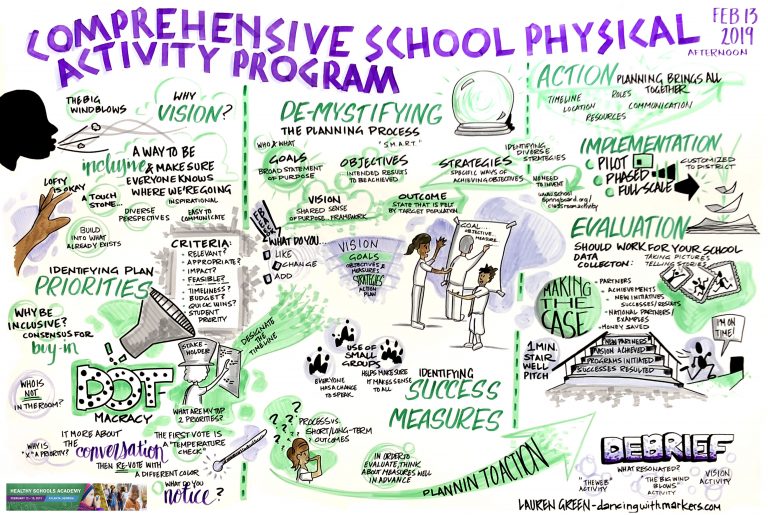 COMPREHENSIVE SCHOOL PHYSICAL
ACTIVITY PROGRAM
FEB 13
2019
AFTERNOON
THE BIG
WIND BLOWS
WHY
VISION?
inclusive
A WAY TO BE
& MAKE SURE
EVERYONE KNOWS
WHERE WE'RE GOING
LOFTY
IS OKAY
A TOUCH
STONE...
INSPIRATIONAL
DIVERSE
PERSPECTIVES
EASY TO
COMMUNICATE
BUILD
INTO WHAT
ALREADY EXISTS
CRITERIA:
- RELEVANT?
- APPROPRIATE?
- IMPACT?
- FEASIBLE?
- TIMELINESS?
- BUDGET?
- QUICK WINS?
- STUDENT
PRIORITY
IDENTIFYING PLAN
PRIORITIES
WHY BE
INCLUSIVE?
CONSENSUS FOR
buy-in
STAKE-
HOLDER
DESIGNATE
THE TIMELINE
WHO IS
NOT
IN THE ROOM?
DOT
MACRACY
WHAT ARE MY TOP
2 PRIORITIES?
WHY IS
"X" A PRIORITY?
IT MORE ABOUT
THE conversation
THEN RE-VOTE WITH
A DIFFERENT COLOR
THE FIRST VOTE IS
A "TEMPERATURE
CHECK"
WHAT DO YOU
notice?
HEALTHY SCHOOLS ACADEMY
DE-MYSTIFYING
THE PLANNING PROCESS
WHO & WHAT
GOALS
BROAD STATEMENT
OF PURPOSE
"S.M.A.R.T."
OBJECTIVES
INTENDED RESULTS
TO BE ACHIEVED
STRATEGIES
SPECIFIC WAYS OF
ACHIEVING OBJECTIVES
IDENTIFYING
DIVERSE
STRATEGIES
NO NEED
TO INVENT
VISION
SHARED SENSE
OF PURPOSE - FRAMEWORK
OUTCOME
STATE THAT IS FELT
BY TARGET POPULATION
WHAT DO YOU...
LIKE
CHANGE
ADD
VISION
GOALS
OBJECTIVES &
MEASURES
STRATEGIES
ACTION
PLAN
GOAL...
OBJECTIVE...
MEASURE...
EVERYONE
HAS A CHANCE
TO SPEAK
USE OF
SMALL
GROUPS
HELPS MAKE SURE
IT MAKES SENSE
TO ALL
IDENTIFYING
SUCCESS
MEASURES
PROCESS VS
SHORT/LONG-TERM
OUTCOMES
IN ORDER TO
EVALUATE, THINK
ABOUT MEASURES WELL
IN ADVANCE
PLANNIN TO ACTION
ACTION PLANNING BRINGS ALL
TOGETHER
TIMELINE
ROLES
LOCATION
COMMUNICATION
RESOURCES
IMPLEMENTATION
• PILOT
• PHASED
• FULL SCALE
CUSTOMIZED
TO DISTRICT
EVALUATION
SHOULD WORK FOR YOUR SCHOOL
DATA
COLLECTON:
TAKING PICTURES
TELLING STORIES
MAKING
THE
CASE
- PARTNERS
- ACHIEVEMENTS
- NEW INITIATIVES
SUCCESSES/RESULTS
- NATIONAL PARTNERS
EXAMPLES
- MONEY SAVED
I'M ON
TIME!
1 MIN.
STAIR
WELL
PITCH
NEW PARTNERS
VISION ACHIEVED
PROGRAMS INITIATED
SUCCESSES RESULTED
DEBRIEF
WHAT RESONATED?
"THE WEB"
ACTIVITY
"THE BIG WIND
BLOWS"
ACTIVITY
VISION
ACTIVITY
LAUREN GREEN - dancingwithmarkers.com